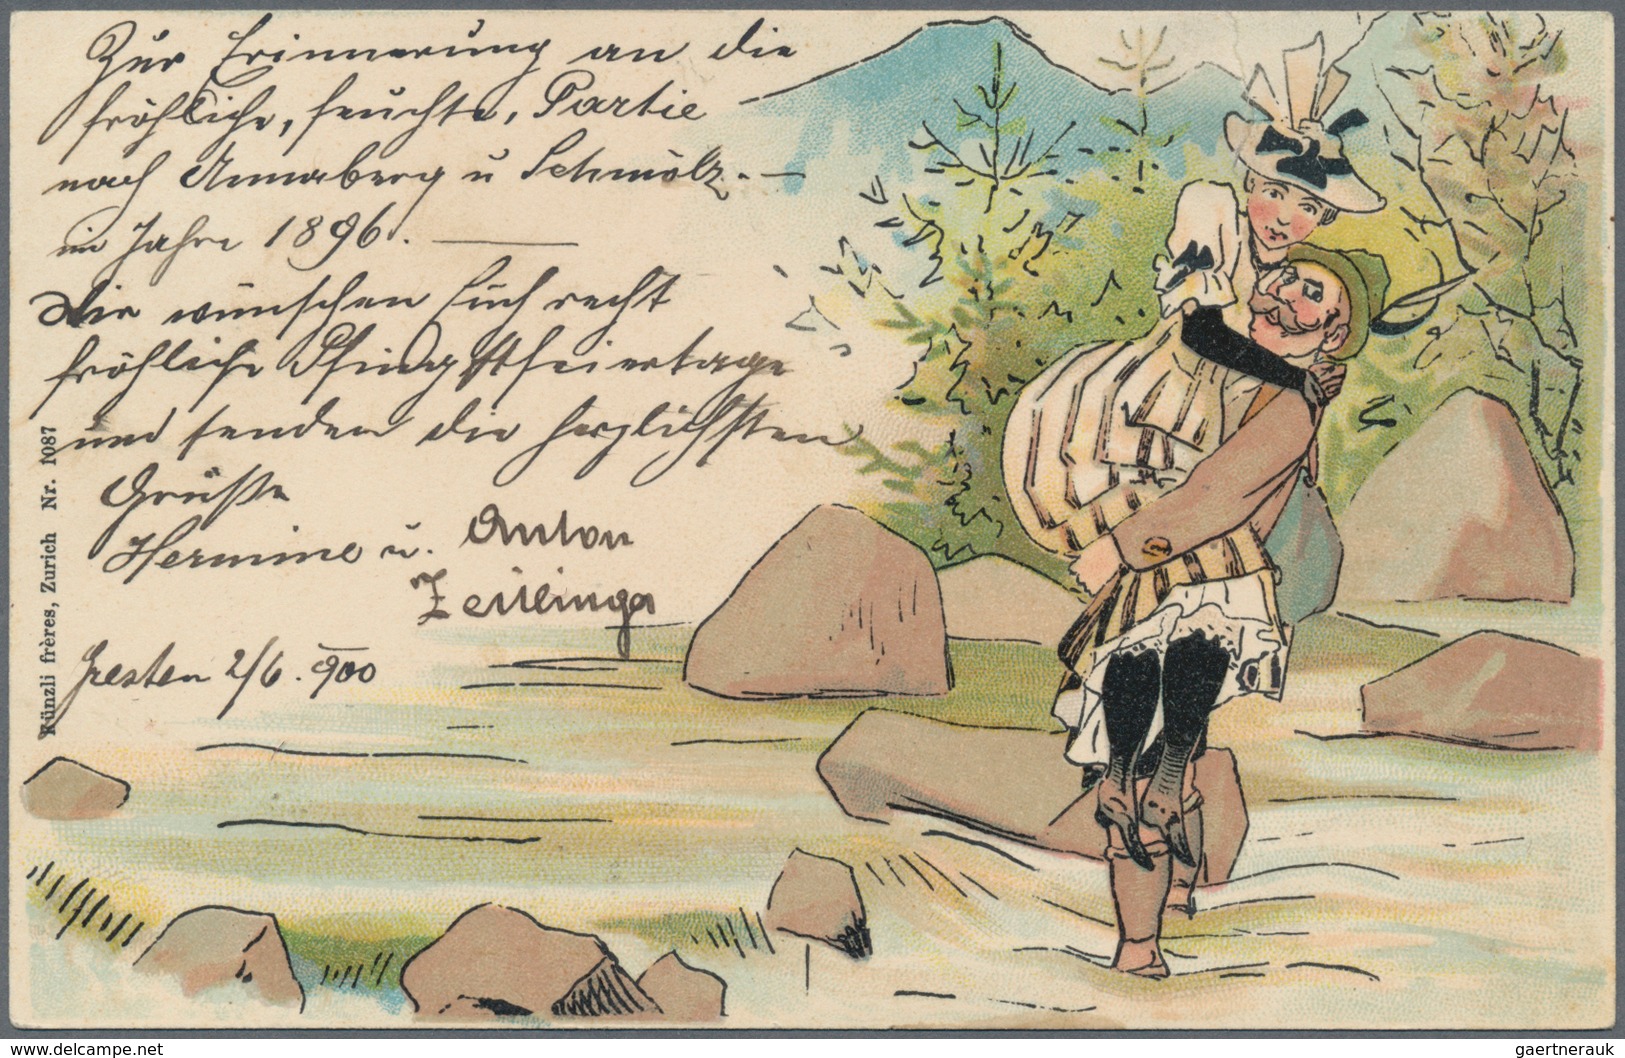 Zur Erinnerung an die
fröhliche, feuchte, Partie
nach Annaberg u Schmölz. —
im Jahre 1896. —
Wir wünschen Euch recht
fröhliche Pfingstfeiertage
und senden die herzlichsten
Grüße
Hermine u. Anton
Zeilinger
Gresten 2/6. 900
Künzli frères, Zurich Nr. 1087
delcampe.net
gaertnerauk